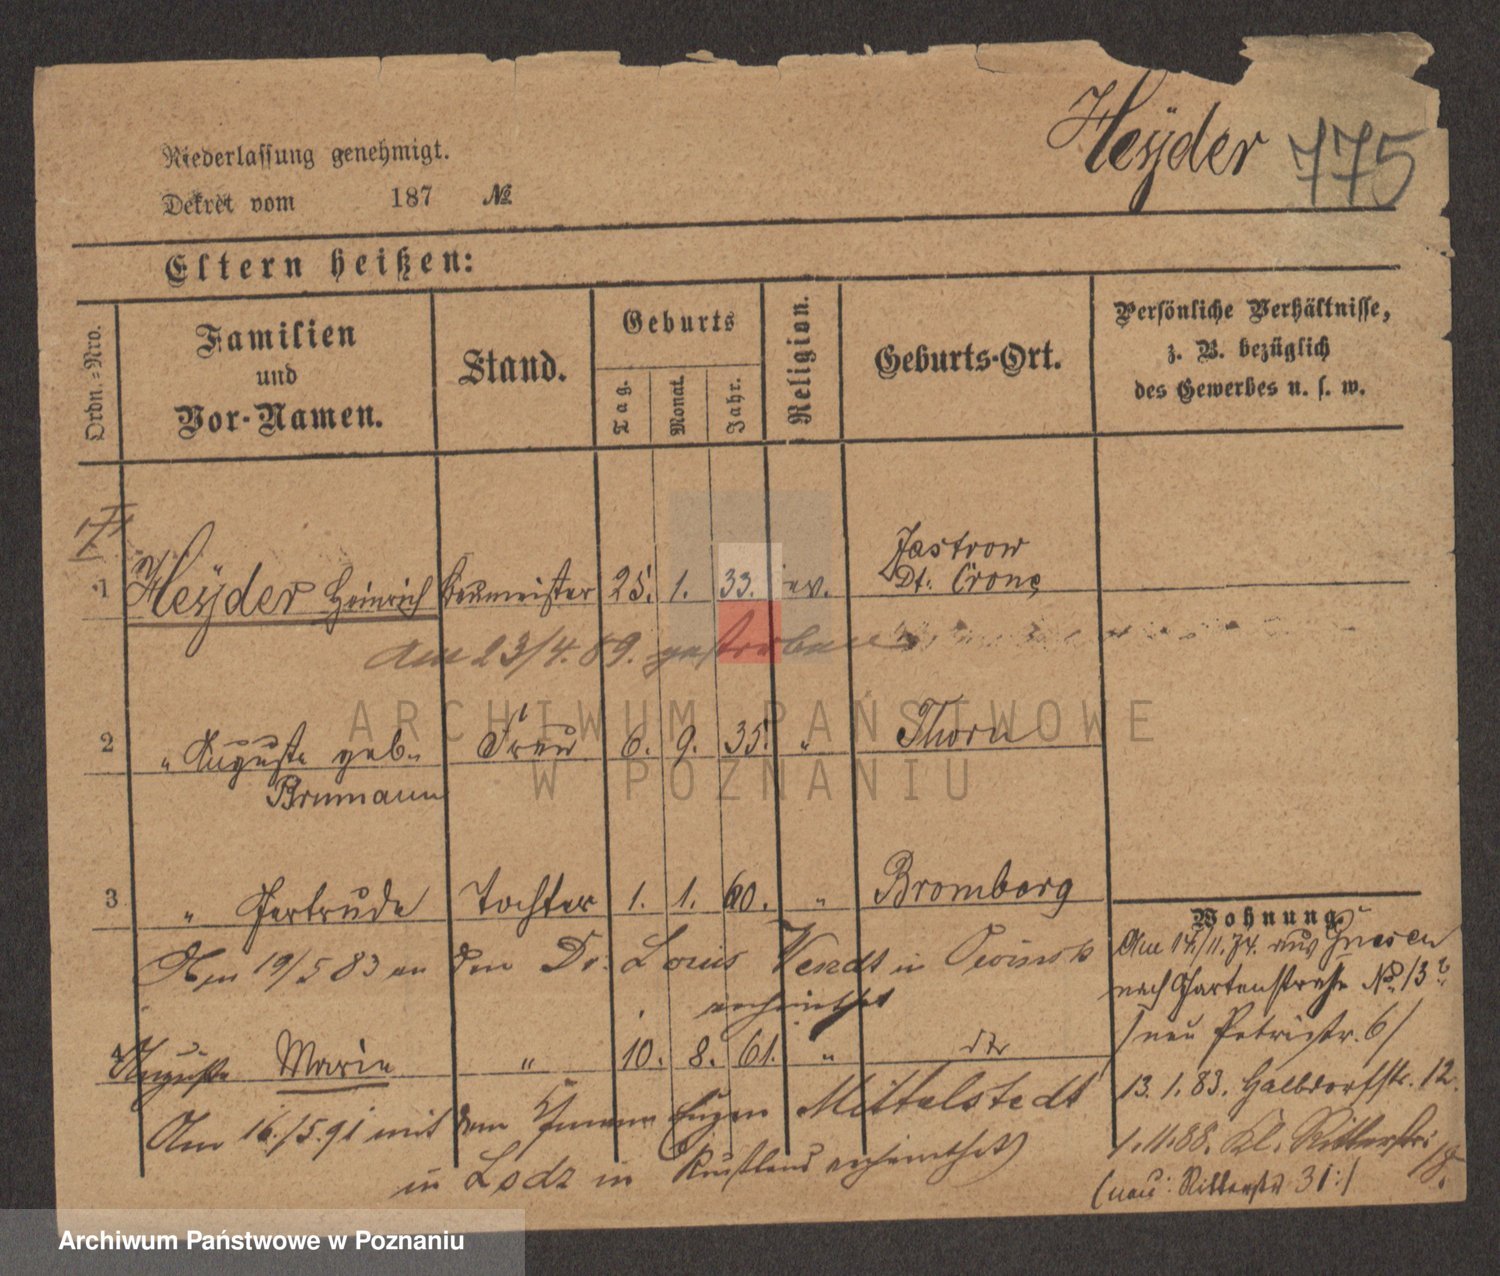 Heÿder 775
Niederlassung genehmigt.
Dekret vom 187 №
Eltern heißen:
Ordn.-Nro.
Familien
und
Vor-Namen.
Stand.
Geburts
Tag.
Monat.
Jahr.
Religion.
Geburts-Ort.
Persönliche Verhältnisse,
z. B. bezüglich
des Gewerbes u. s. w.
Jastrow
1 Heÿder Heinrich Baumeister 25. 1. 33. ev. Dt. Crone
am 23/4.89. gestorben
ARCHIWUM PAŃSTWOWE
W POZNANIU
2 " Auguste geb. Frau 6. 9. 35. " Thorn
Brumann
3 " Gertrude Tochter 1. 1. 60. " Bromberg
Am 19/5 83 an den Dr. Louis Wendt in
verheirathet
4 Auguste Marie " 10. 8. 61. " do
Am 16./5.91 mit dem Eugen Mittelstedt
in Lodz in Russland verheirathet
Wohnung
Am 14/11.74. aus Gnesen
nach Gartenstraße No. 13
/neu Petristr. 6/
13.1.83. Halbdorfstr. 12.
1.11.88. Kl. Ritterstr.
18.
(neu: Ritterstr 31:)
Archiwum Państwowe w Poznaniu